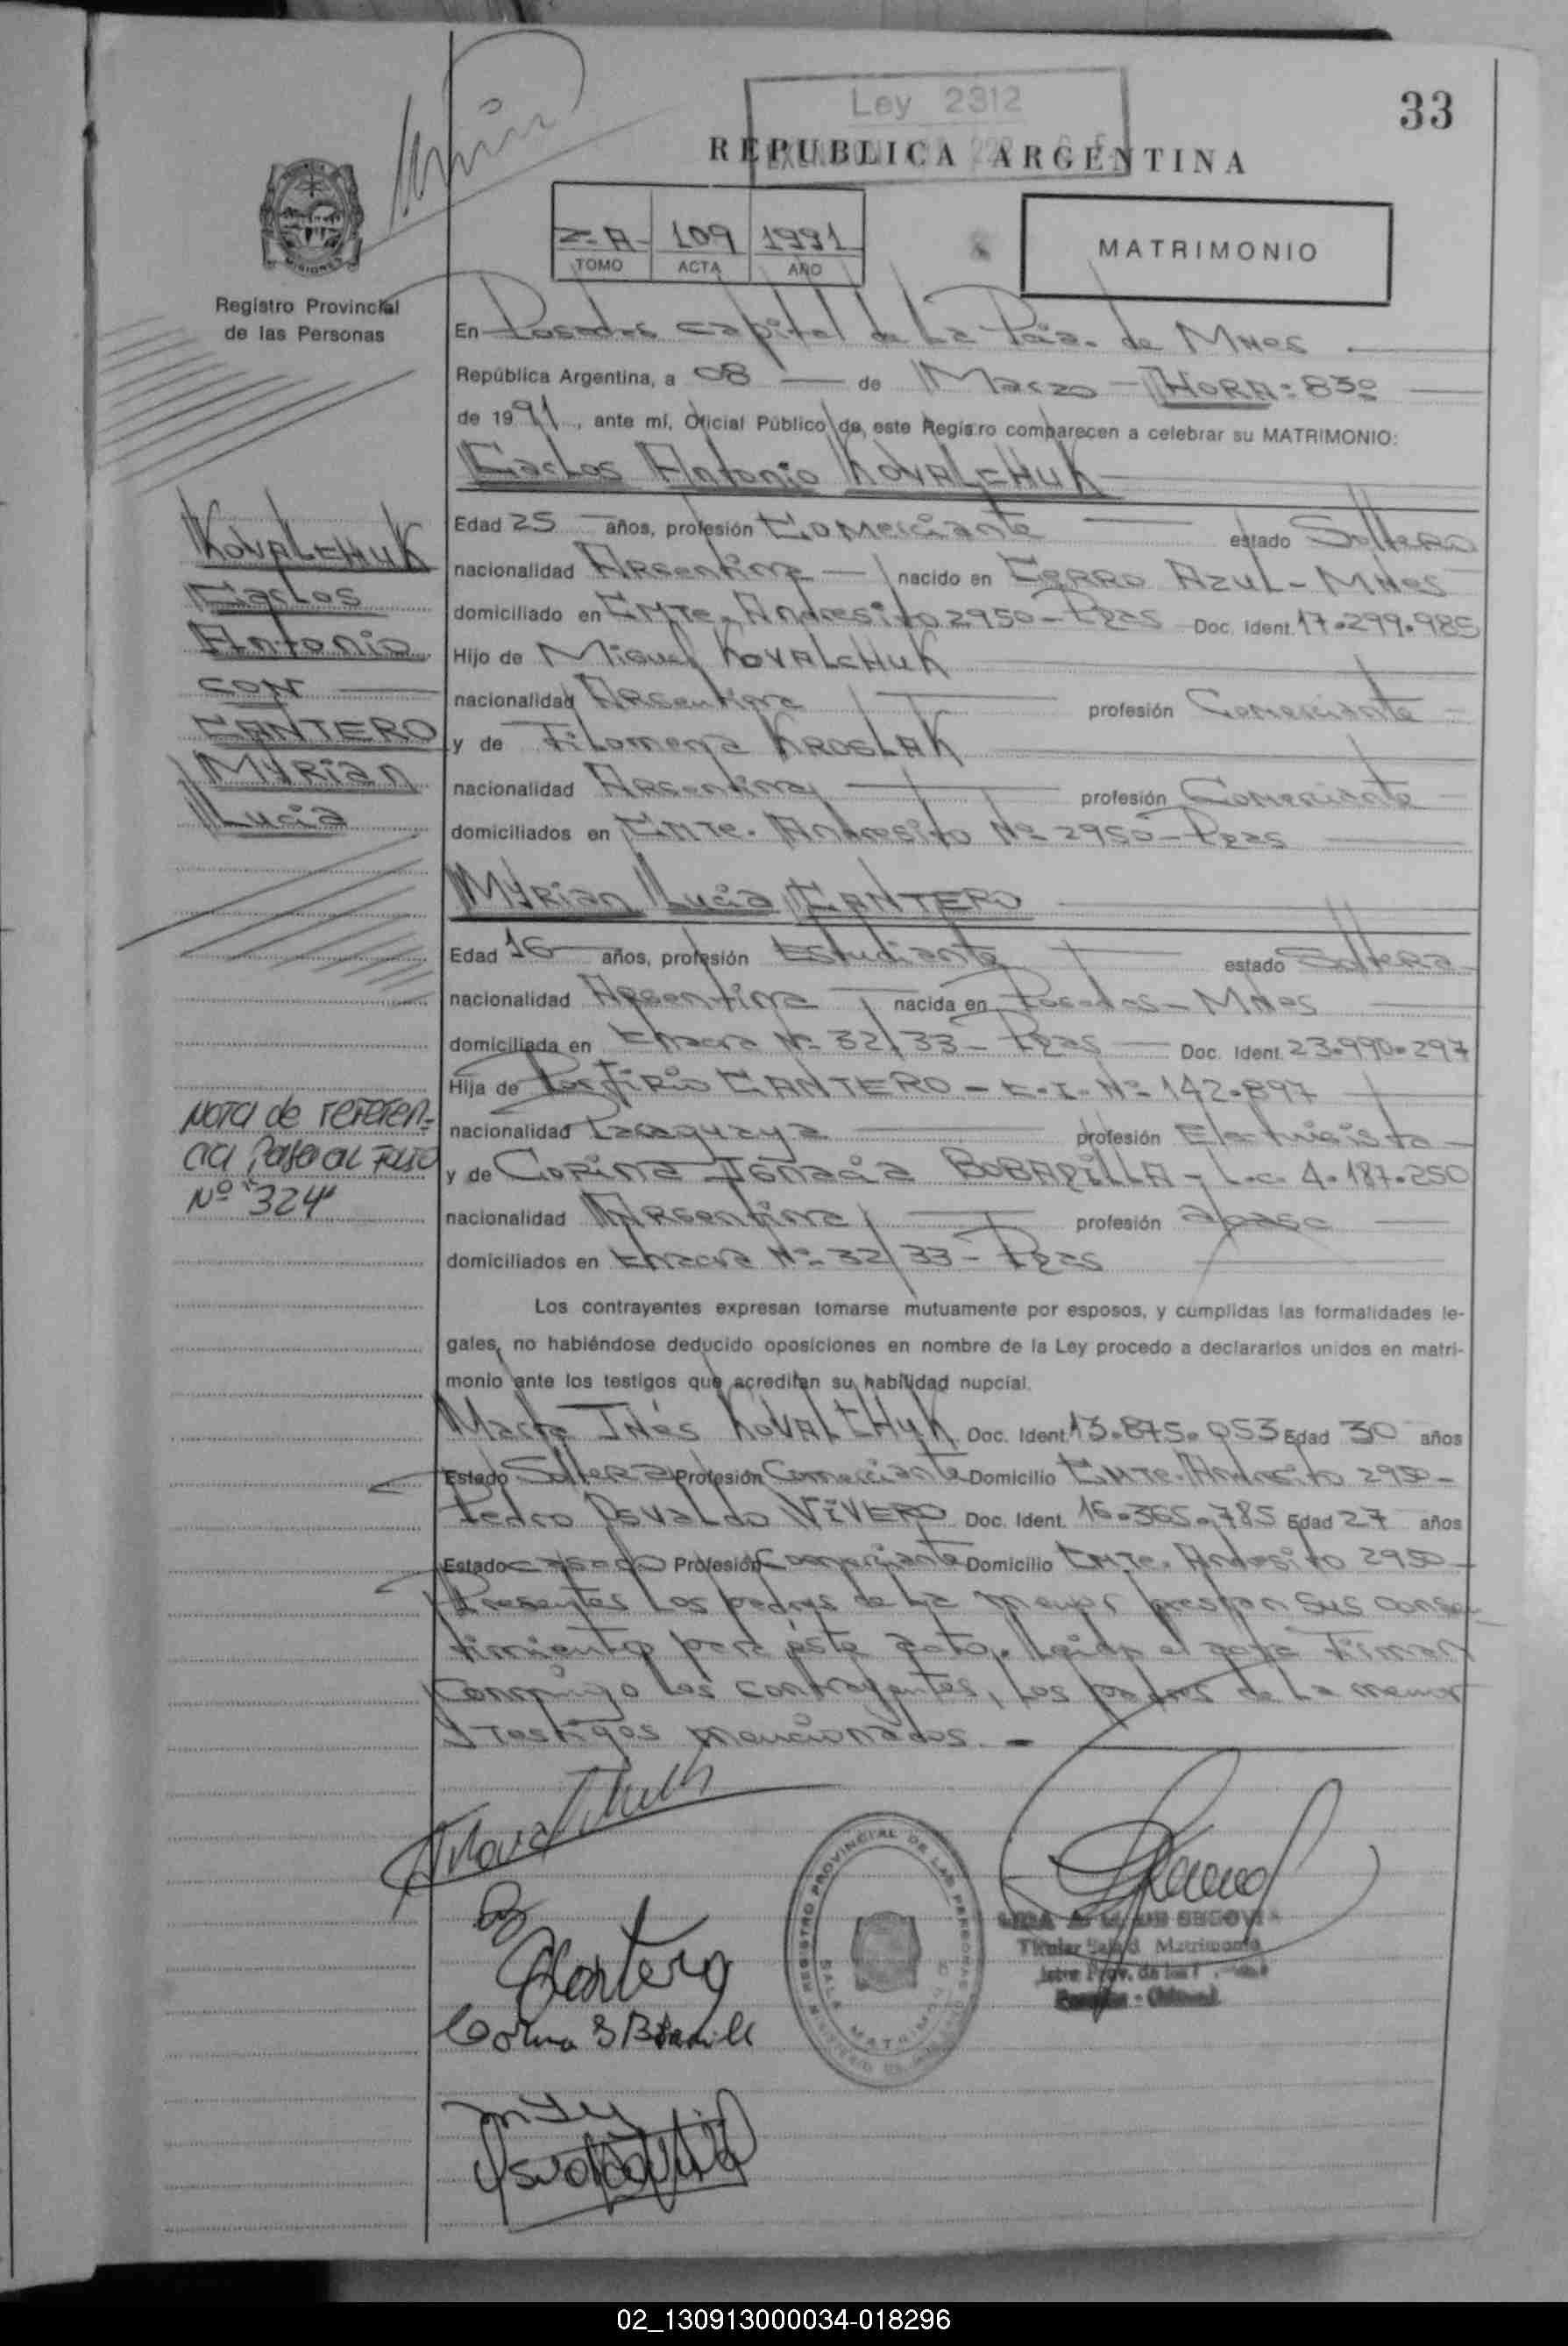 Ley 2312
33
REPUBLICA ARGENTINA
2-A- 109 1991
TOMO ACTA AÑO
MATRIMONIO
MISIONES
Registro Provincial
de las Personas
En Posadas Capital de La Pcia. de Mnes
República Argentina, a 08 de Marzo - HORA: 8³⁰
de 1991, ante mí, Oficial Público de este Registro comparecen a celebrar su MATRIMONIO:
Carlos Antonio KOVALCHUK
KOVALCHUK
Carlos
Antonio
CON
CANTERO
MYRian
Lucia
Edad 25 años, profesión Comerciante estado Soltero
nacionalidad Argentina nacido en CERRO AZUL - MNes
domiciliado en CMTe. Andresito 2950 - Pdas Doc. Ident. 17.299.985
Hijo de Miguel KOVALCHUK
nacionalidad Argentina profesión Comerciante
y de Filomena KROSLAK
nacionalidad Argentina profesión Comerciante
domiciliados en CMTe. Andresito Nº 2950 - Pdas
MYRian Lucia CANTERO
Edad 16 años, profesión Estudiante estado Soltera
nacionalidad Argentina nacida en Posadas - MNes
domiciliada en Chacra Nº 32/33 - Pdas Doc. Ident. 23.990.297
Hija de Porfirio CANTERO - C.I. Nº 142.897
nacionalidad Paraguaya profesión Electricista
y de Corina Ignacia BOBADILLA - L.C. 4.187.250
nacionalidad Argentina profesión
domiciliados en Chacra Nº 32/33 - Pdas
NOTA de referen-
cia Pasa al Folio
Nº "324"
Los contrayentes expresan tomarse mutuamente por esposos, y cumplidas las formalidades le-
gales, no habiéndose deducido oposiciones en nombre de la Ley procedo a declararlos unidos en matri-
monio ante los testigos que acreditan su habilidad nupcial.
Marta Inés KOVALCHUK Doc. Ident. 13.875.053 Edad 30 años
Estado Soltera Profesión Comerciante Domicilio CMTe. Andresito 2950 -
Pedro Osvaldo VIVERO Doc. Ident. 16.365.785 Edad 27 años
Estado casado Profesión Comerciante Domicilio CMTe. Andresito 2950 -
Presentes Los padres de La menor prestan sus consen-
timiento para éste acto. Leida el acta Firman
Conmigo los contrayentes, los padres de La menor
y Testigos mencionados. -
Cantero
Corina I Bobadilla
REGISTRO PROVINCIAL DE LAS PERSONAS
SALA MATRIMONIO
SEGOVIA
Titular Sala d Matrimonio
Prov. de las
02_130913000034-018296